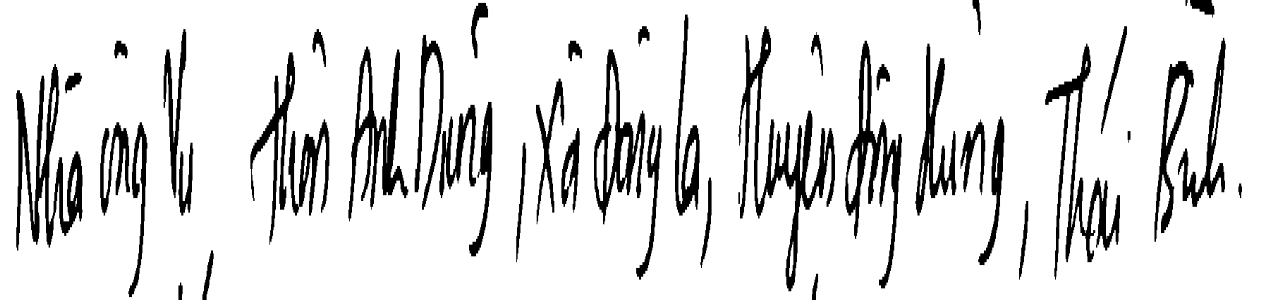 Nhà ông Vụ, thôn Anh Dũng, Xã Đông La, Huyện Đông Hưng, Thái Bình.